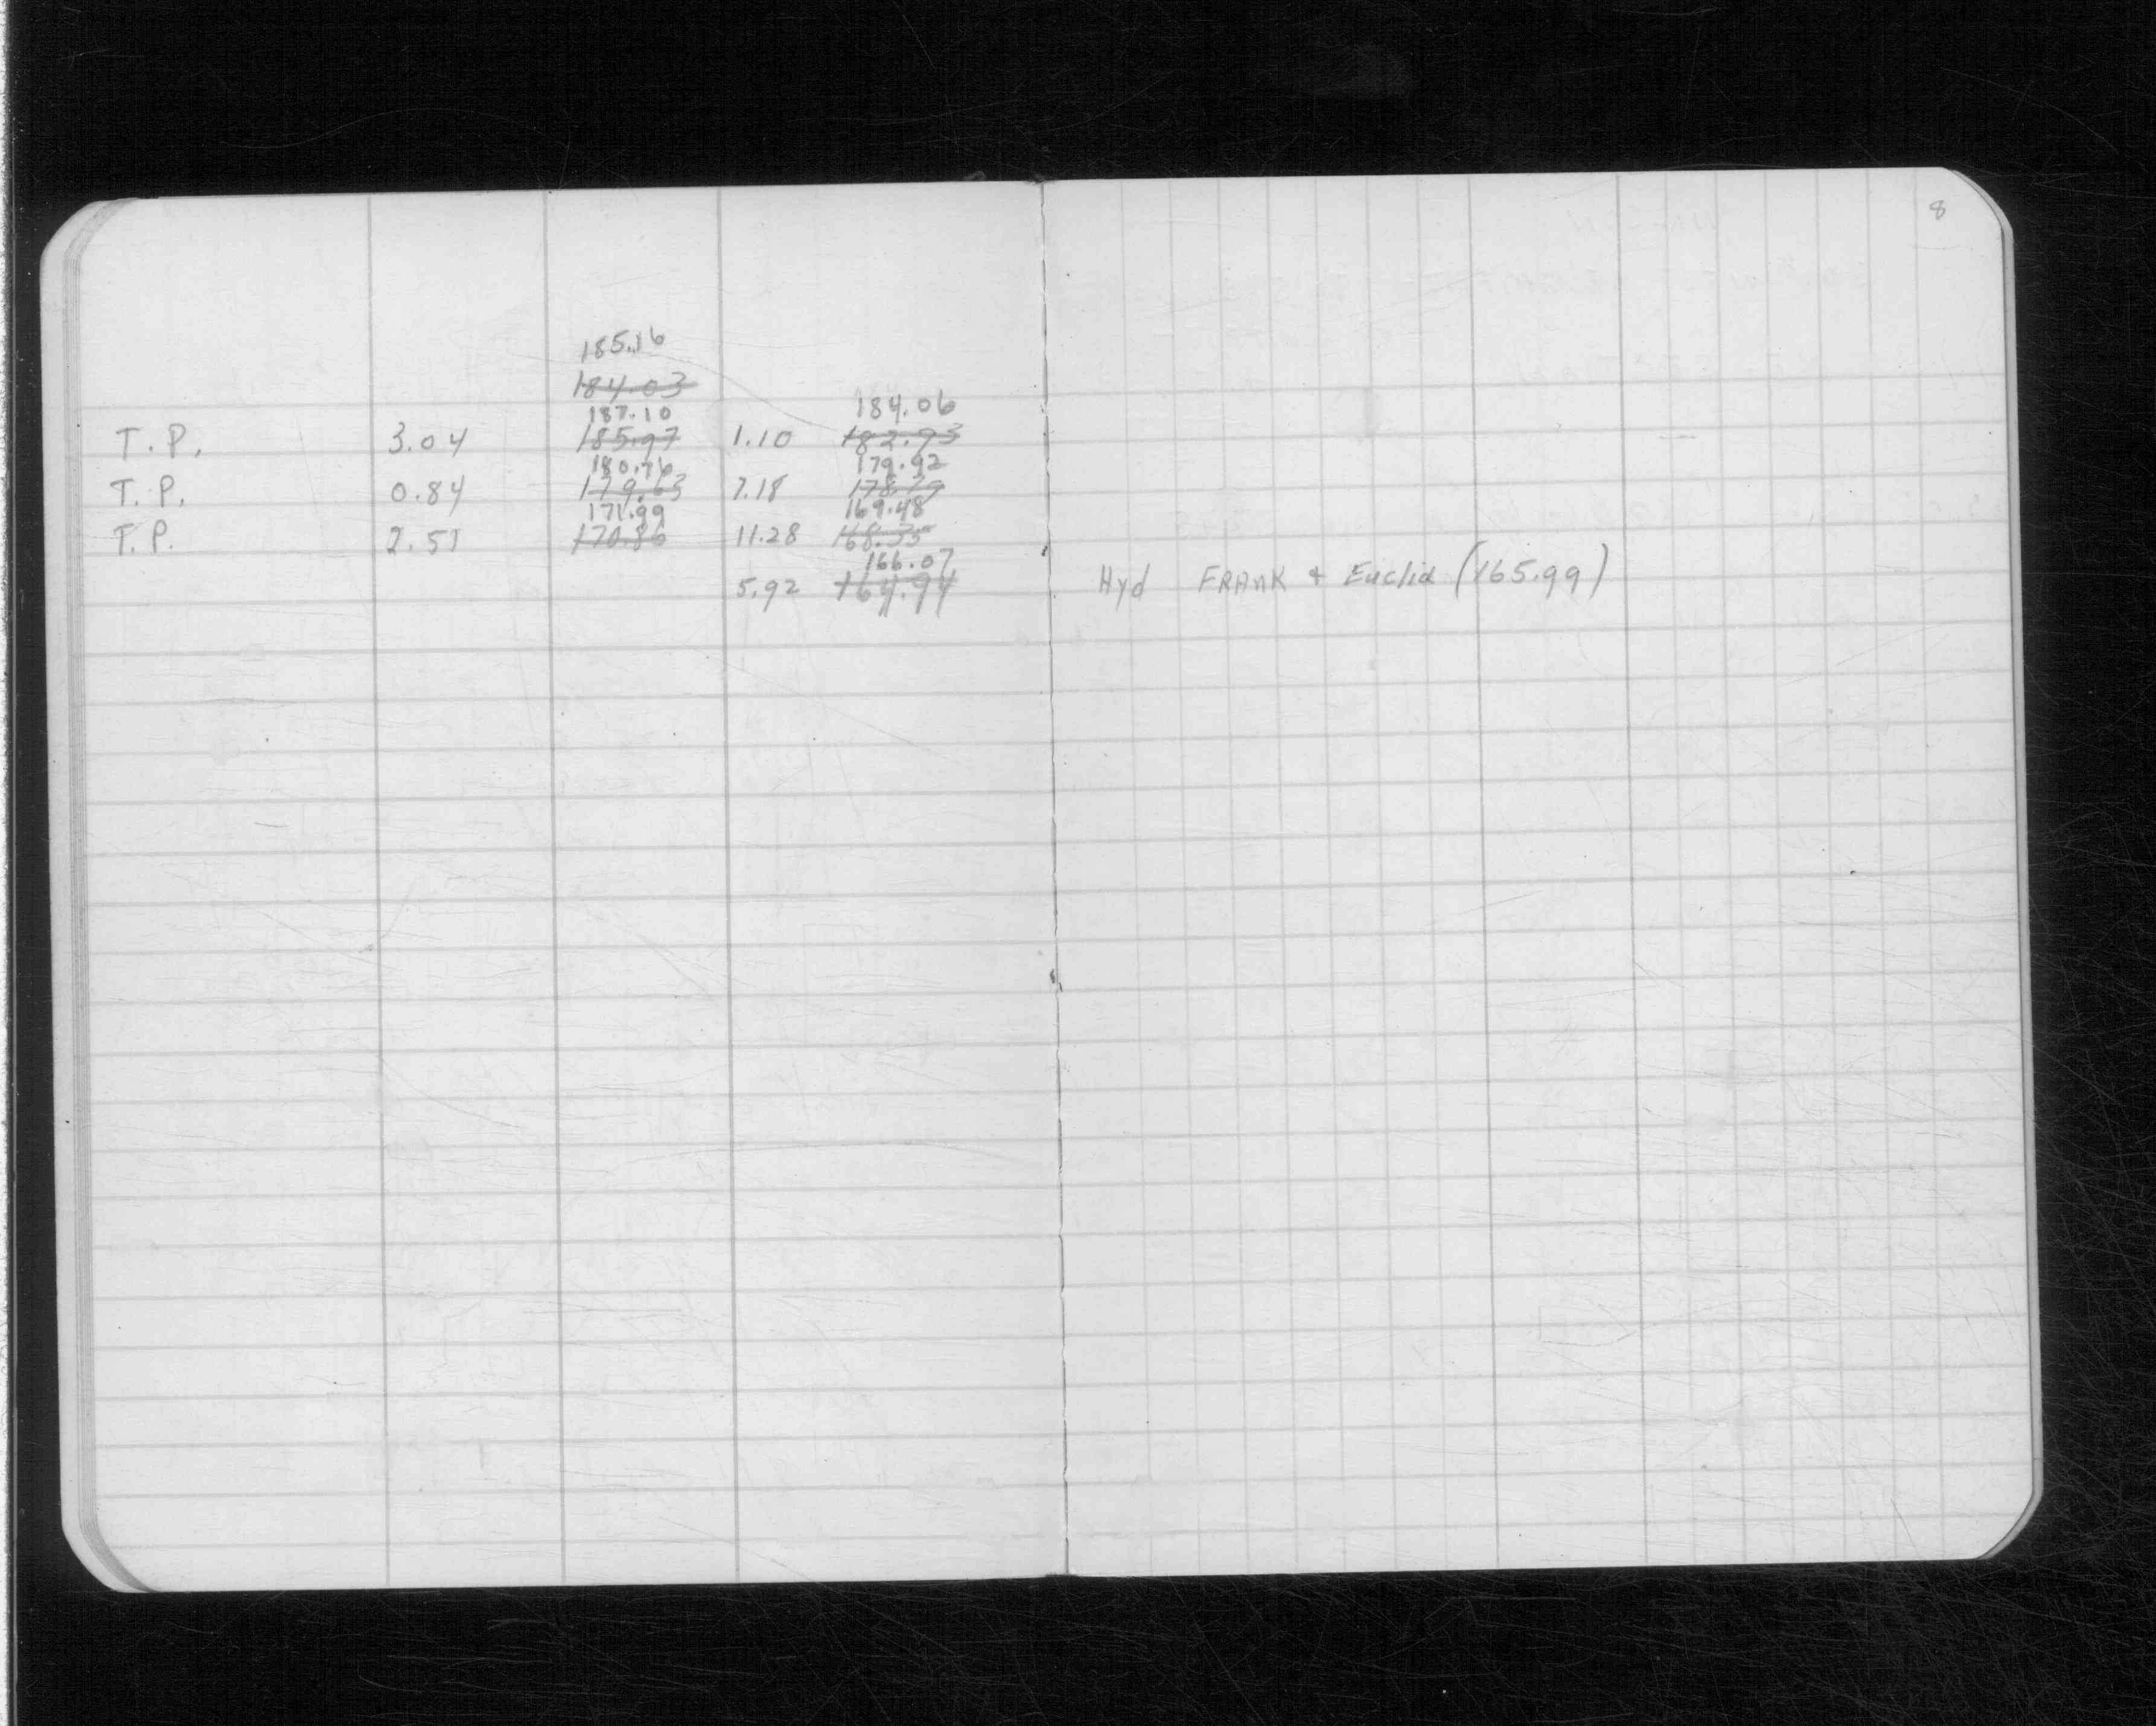 8
185.16
184.03
187.10 184.06
T.P. 3.04 185.97 1.10 182.93
180.76 179.92
T.P. 0.84 179.63 7.18 178.79
171.99 169.48
T.P. 2.51 170.86 11.28 168.35
166.07
5.92 164.94 Hyd FRANK + Euclid (165.99)